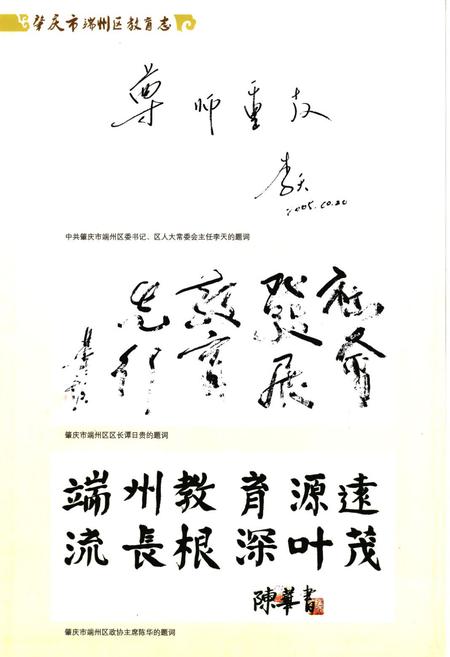 肇庆市端州区教育志
尊师重教
李天
2005.10.20
中共肇庆市端州区委书记、区人大常委会主任李天的题词
社会
发展
教育
先行
肇庆市端州区区长谭日贵的题词
端州教育源遠
流長根深叶茂
陳華書
肇庆市端州区政协主席陈华的题词